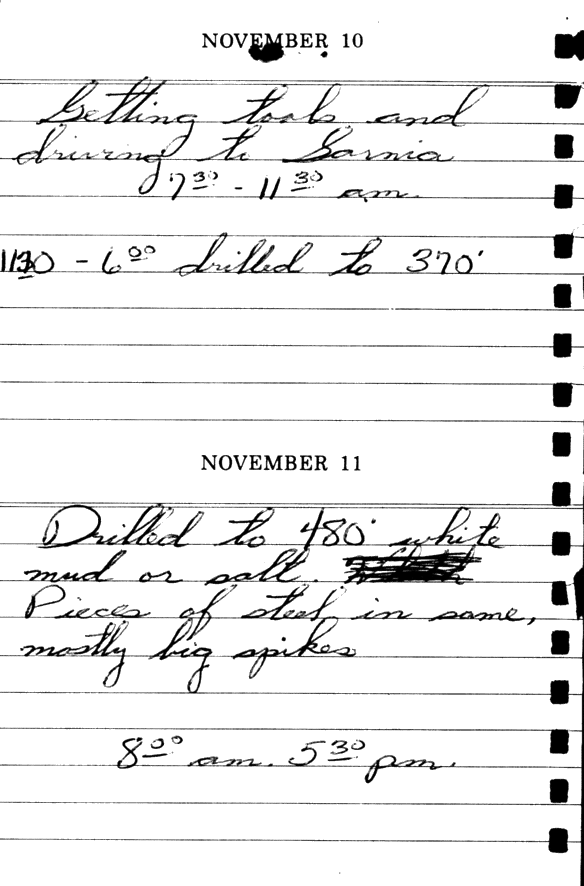 NOVEMBER 10
Getting tools and
driving to Sarnia
7 30 - 11 30 am.
1130 - 6 00 drilled to 370'
NOVEMBER 11
Drilled to 480' white
mud or salt.
Pieces of steel in same,
mostly big spikes
8 00 am. 5 30 pm.